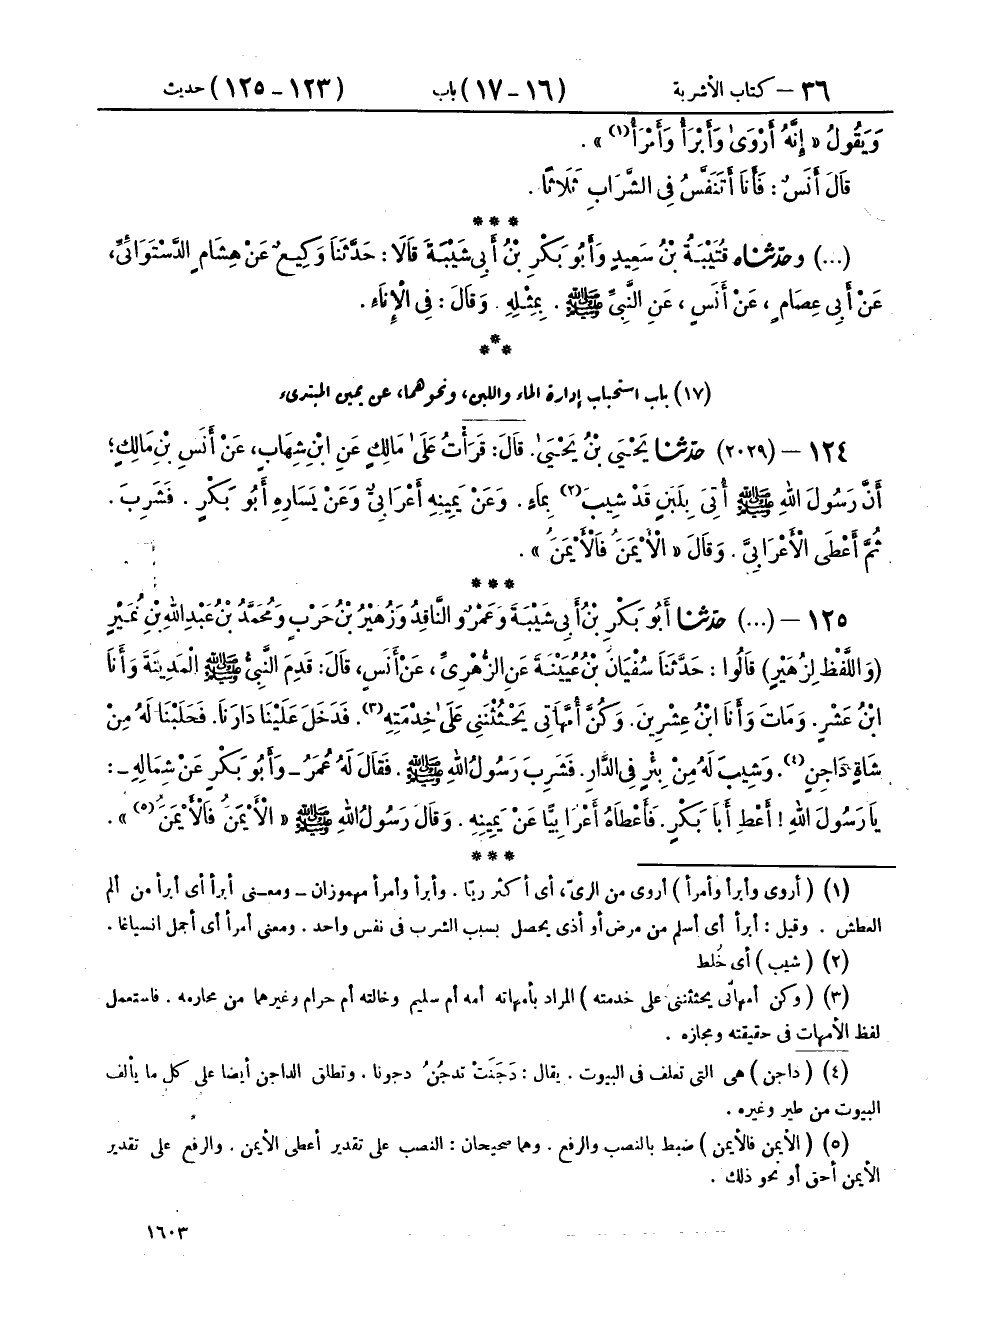 ٣٦ – كتاب الأشربة (١٦ – ١٧) باب (١٢٣ – ١٢٥) حديث
وَيَقُولُ « إِنَّهُ أَرْوَىٰ وَأَبْرَأُ وَأَمْرَأُ(١) » .
قَالَ أَنَسٌ : فَأَنَا أَتَنَفَّسُ فِى الشَّرَابِ ثَلَاثًا .
***
(...) وحدّثناه قُتَيْبَةُ بْنُ سَعِيدٍ وَأَبُو بَكْرِ بْنُ أَبِى شَيْبَةَ قَالَا : حَدَّثَنَا وَكِيعٌ عَنْ هِشَامٍ الدَّسْتَوَائِىِّ،
عَنْ أَبِى عِصَامٍ ، عَنْ أَنَسٍ ، عَنِ النَّبِىِّ ﷺ . بِمِثْلِهِ . وَقَالَ : فِى الْإِنَاءِ .
***
(١٧) باب استحباب إدارة الماء واللبن، ونحوهما، عن يمين المبتدىء
١٢٤ – (٢٠٢٩) حدّثنا يَحْيَى بْنُ يَحْيَىٰ. قَالَ: قَرَأْتُ عَلَىٰ مَالِكٍ عَنِ ابْنِ شِهَابٍ، عَنْ أَنَسِ بْنِ مَالِكٍ؛
أَنَّ رَسُولَ اللهِ ﷺ أُتِىَ بِلَبَنٍ قَدْ شِيبَ(٢) بِمَاءٍ . وَعَنْ يَمِينِهِ أَعْرَابِىٌّ وَعَنْ يَسَارِهِ أَبُو بَكْرٍ . فَشَرِبَ .
ثُمَّ أَعْطَى الْأَعْرَابِىَّ . وَقَالَ « الْأَيْمَنَُ فَالْأَيْمَنَُ » .
***
١٢٥ – (...) حدّثنا أَبُو بَكْرِ بْنُ أَبِى شَيْبَةَ وَعَمْرٌو النَّاقِدُ وَزُهَيْرُ بْنُ حَرْبٍ وَمُحَمَّدُ بْنُ عَبْدِ اللهِ بْنِ نُمَيْرٍ
(وَاللَّفْظُ لِزُهَيْرٍ) قَالُوا : حَدَّثَنَا سُفْيَانُ بْنُ عُيَيْنَةَ عَنِ الزُّهْرِىِّ، عَنْ أَنَسٍ، قَالَ: قَدِمَ النَّبِىُّ ﷺ الْمَدِينَةَ وَأَنَا
ابْنُ عَشْرٍ. وَمَاتَ وَأَنَا ابْنُ عِشْرِينَ. وَكُنَّ أُمَّهَاتِى يَحْثُثْنَنِى عَلَىٰ خِدْمَتِهِ(٣). فَدَخَلَ عَلَيْنَا دَارَنَا. فَحَلَبْنَا لَهُ مِنْ
شَاةٍ دَاجِنٍ(٤). وَشِيبَ لَهُ مِنْ بِئْرٍ فِى الدَّارِ. فَشَرِبَ رَسُولُ اللهِ ﷺ . فَقَالَ لَهُ عُمَرُ – وَأَبُو بَكْرٍ عَنْ شِمَالِهِ – :
يَا رَسُولَ اللهِ ! أَعْطِ أَبَا بَكْرٍ. فَأَعْطَاهُ أَعْرَابِيًّا عَنْ يَمِينِهِ . وَقَالَ رَسُولُ اللهِ ﷺ « الْأَيْمَنَُ فَالْأَيْمَنَُ(٥) » .
***
(١) ( أروى وأبرأ وأمرأ ) أروى من الرىّ، أى أكثر ريّا . وأبرأ وأمرأ مهموزان – ومعنى أبرأ أى أبرأ من ألم
العطش . وقيل : أبرأ أى أسلم من مرض أو أذى يحصل بسبب الشرب فى نفس واحد . ومعنى أمرأ أى أجمل انسياغا .
(٢) ( شيب ) أى خُلط
(٣) ( وكن أمهاتى يحثثننى على خدمته ) المراد بأمهاته أمه أم سليم وخالته أم حرام وغيرهما من محارمه . فاستعمل
لفظ الأمهات فى حقيقته ومجازه .
(٤) ( داجن ) هى التى تعلف فى البيوت . يقال : دَجَنَتْ تدجُنُ دجونا . وتطلق الداجن أيضا على كل ما يألف
البيوت من طير وغيره .
(٥) ( الأيمن فالأيمن ) ضبط بالنصب والرفع . وهما صحيحان : النصب على تقدير أعطى الأيمن . والرفع على تقدير
الأيمن أحق أو نحو ذلك .
١٦٠٣